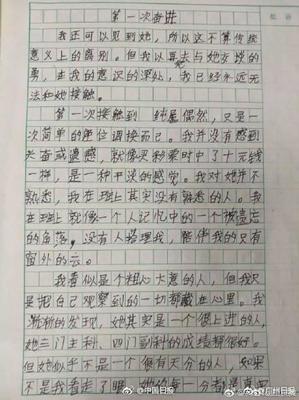 第一次奋进
我还可以见到她，所以这不算传统
意义上的离别。但我以再去与她交谈的
勇，由我的意识的深处，我已经永远无
法和她接触。
第一次接触到 纯属偶然，只是一
次简单的座位调换而已。我并没有感到
兴奋或遗憾，就像买彩票时中了十元钱
一样，是一种平淡的感觉。我对她并不
熟悉，我在班上其实没有熟悉的人。我
在班上就像一个人记忆中的一个被遗忘
的角落，没有人搭理我，陪伴我的只有
窗外的云。
我看似是个粗心大意的人，但我只
是把自己观察到的一切都藏在心里。我
渐渐的发现，她其实是一个很上进的人，
她三门主科、四门副科的成绩都很好。
但她似乎不是一个很有天分的人，如果
不是我看走了眼，她的每一分都
@中国日报
@杭州日报